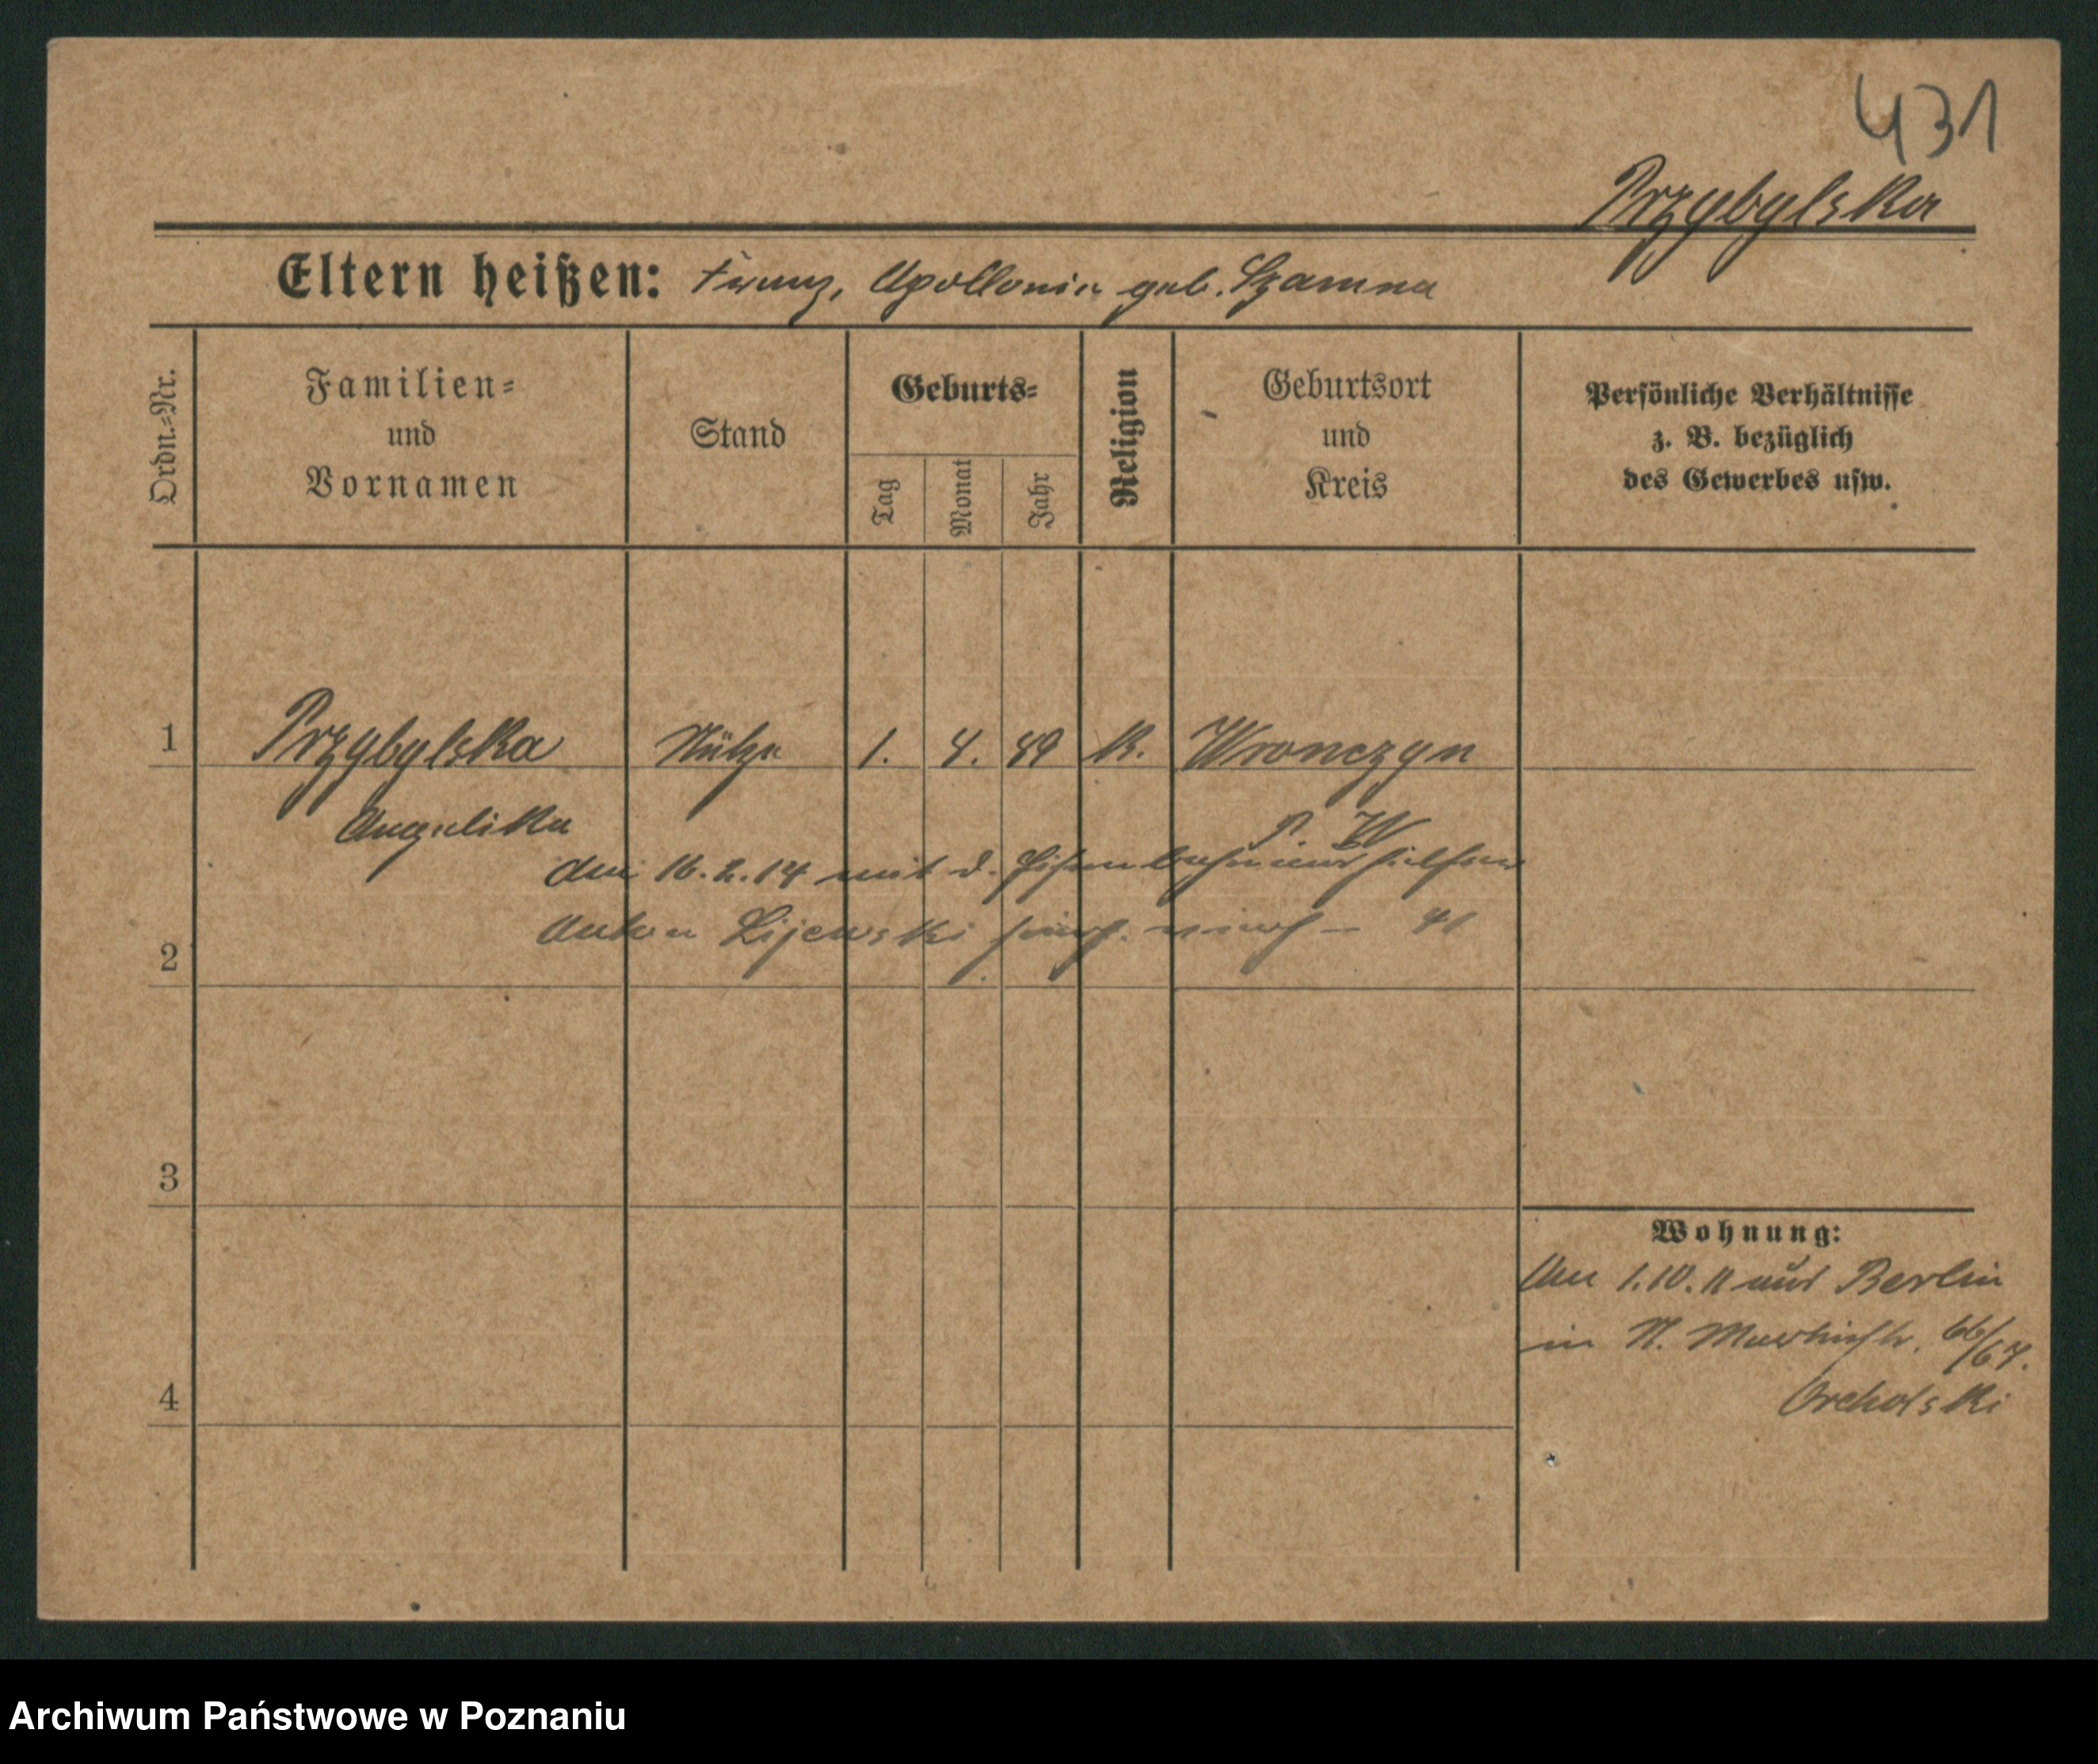 431
Przybylska
Eltern heißen: Franz, Apollonia geb. Szamna
Ordn.-Nr.
Familien-
und
Vornamen
Stand
Geburts-
Tag
Monat
Jahr
Religion
Geburtsort
und
Kreis
Persönliche Verhältnisse
z. B. bezüglich
des Gewerbes usw.
1 Przybylska Stütze 1. 4. 89 K. Wronczyn
Angelika P. W
den 16.2.14 mit d.
2 Anton Lijewski
3
4
Wohnung:
Am 1.10.11 aus Berlin
in St. Martinstr. 66/67.
Orcholski
Archiwum Państwowe w Poznaniu